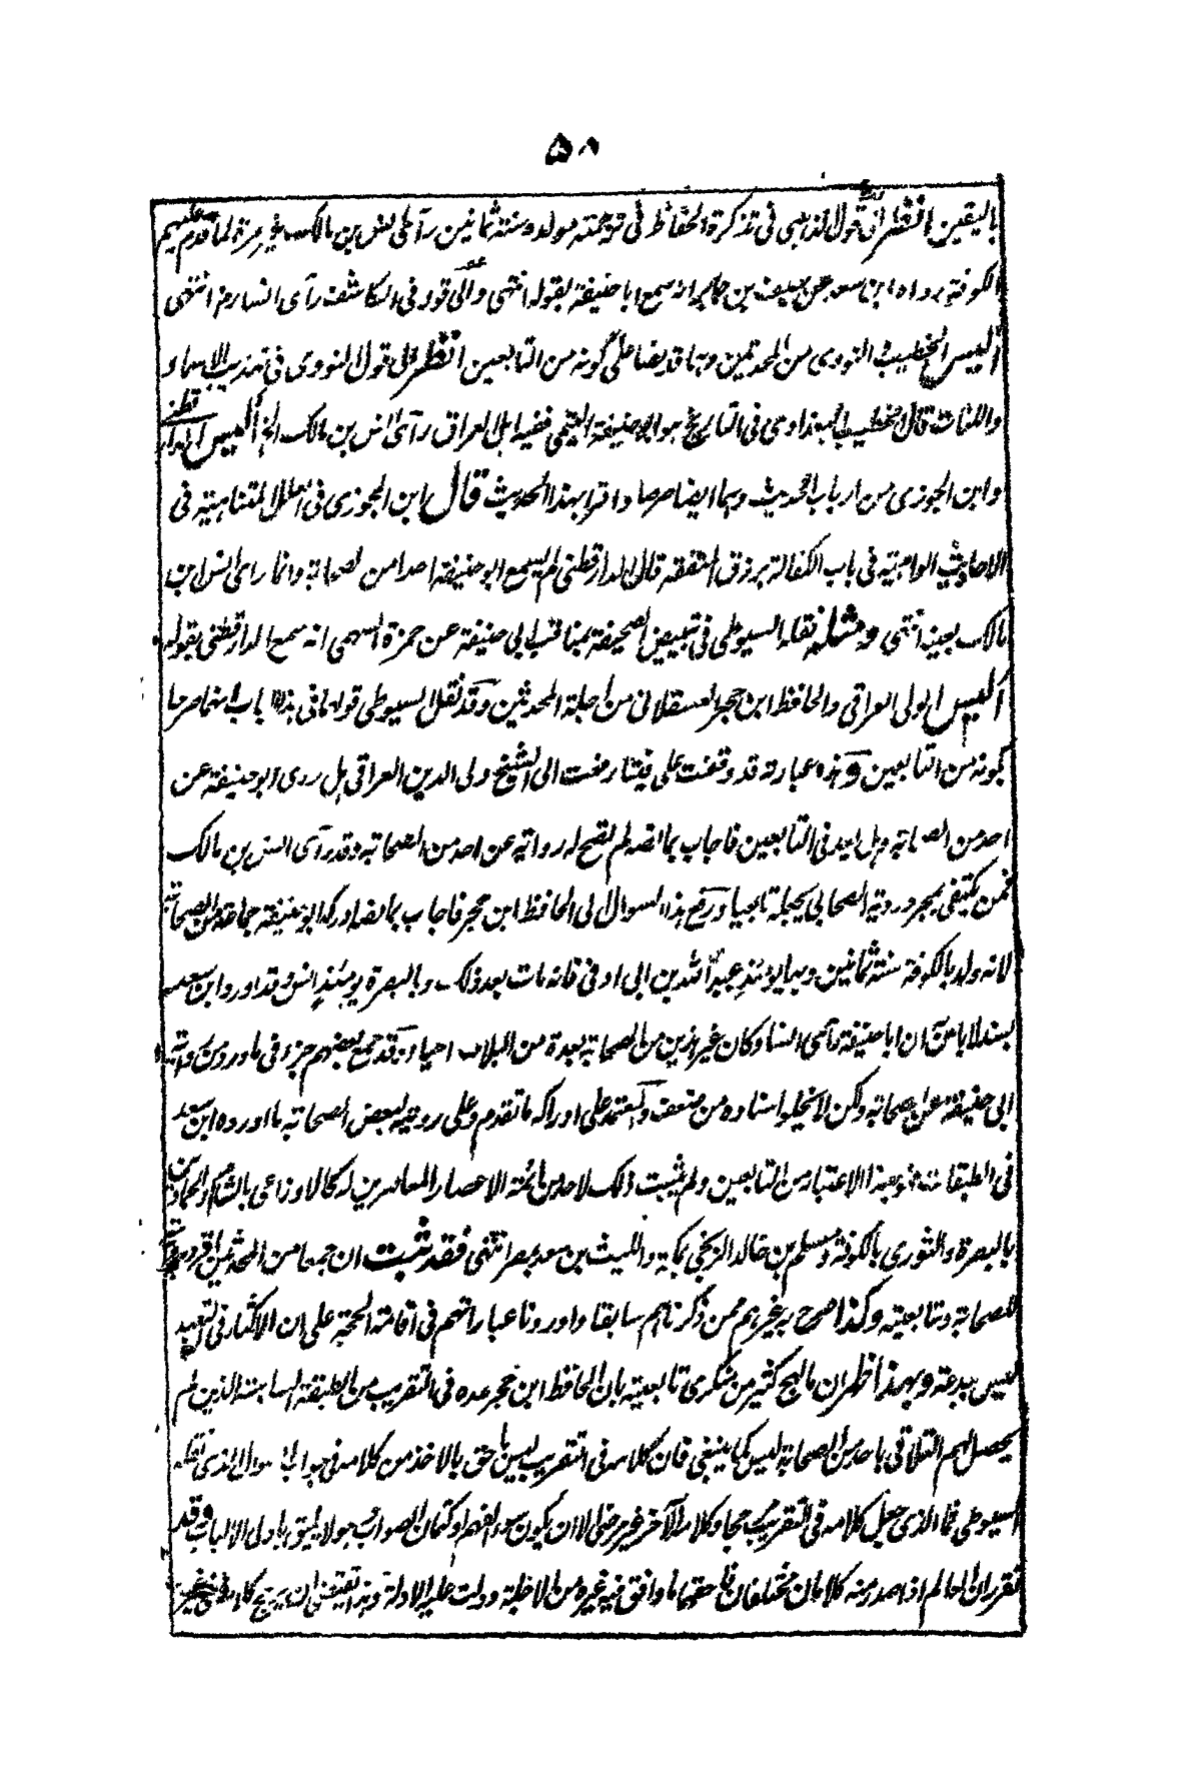 ٥٨
باليقين انظر الى قول الذهبى فى تذكرة الحفاظ فى ترجمته مولده سنة ثمانين رآى انس بن مالك غير مرة لما قدم عليهم
الكوفة رواه ابن سعد عن سيف بن جابر انه سمع ابا حنيفة يقوله انتهى والى قوله فى الكاشف رآى انسا رض انتهى
أليس الخطيب والنووى من المحدثين وهما قد نصا على كونه من التابعين انظر الى قول النووى فى تهذيب الاسماء و
واللغات قال الخطيب البغدادى فى التاريخ هو ابو حنيفة التيمى فقيه اهل العراق رآى انس بن مالك الخ أليس الدار قطنى
وابن الجوزى من ارباب الحديث وهما ايضا صرحا واقرا بهذا الحديث قال ابن الجوزى فى العلل المتناهية فى
الاحاديث الواهية فى باب الكفالة برزق المتفقه قال الدارقطنى لم يسمع ابو حنيفة احدا من الصحابة وانما رآى انس ابن
مالك بعينه انتهى ومثله نقله السيوطى فى تبييض الصحيفة بمناقب ابى حنيفة عن حمزة السهمى انه سمع الدارقطنى يقوله
أليس الولى العراقى والحافظ ابن حجر العسقلانى من اجلة المحدثين وقد نقل السيوطى قولهما فى هذا الباب انهما صرحا
بكونه من التابعين وهذه عبارته قد وقفت على فتيا رفعت الى الشيخ ولى الدين العراقى هل روى ابو حنيفة عن
احد من الصحابة وهل يعد فى التابعين فاجاب بما نصه لم تصح له رواية عن احد من الصحابة وقد رآى انس بن مالك
فمن يكتفى بمجرد روية الصحابى يجعله تابعيا ورفع هذا السوال الى الحافظ ابن حجر فاجاب بما نصه ادرك ابو حنيفة جماعة من الصحابة
لانه ولد بالكوفة سنة ثمانين وبها يومئذ عبد الله بن ابى اوفى فانه مات بعد ذلك وبالبصرة يومئذ انس وقد اورد ابن سعد
بسند لا باس به ان ابا حنيفة رآى انسا وكان غير هذين من الصحابة بعدة من البلاد احياء وقد جمع بعضهم جزء فى ما ورد من رواية
ابى حنيفة عن الصحابة ولكن لا يخلوا اسناده من ضعف والمعتمد على ادراكه ما تقدم وعلى رويته لبعض الصحابة ما اورده ابن سعد
فى الطبقات فهو بهذا الاعتبار من التابعين ولم يثبت ذلك لاحد من ائمة الاعصار المعاصرين له كالاوزاعى بالشام والحمادين
بالبصرة والثورى بالكوفة ومسلم بن خالد الزنجى بمكة والليث بن سعد بمصر انتهى فقد ثبت ان جمعا من المحدثين اقروا برويته
للصحابة وتابعيته وكذا صرح به غيرهم ممن ذكرناهم سابقا واوردنا عباراتهم فى اقامة الحجة على ان الاكثار فى التعبد
ليس ببدعة وبهذا ظهر ان ما لهج كثير من منكرى تابعيته بان الحافظ ابن حجر عده فى التقريب من الطبقة السابعة الذين لم
يحصل لهم التلاقى باحد من الصحابة ليس كما ينبغى فان كلامه فى التقريب ليس احق بالاخذ من كلامه فى جواب السوال الذى نقله
السيوطى فما الذى جعل كلامه فى التقريب مجابا وكلامه الآخر غير مرضى الا ان يكون سوء الفهم او كتمان الصواب هو لا يليق باولى الالباب وقد
تقرر ان العالم اذا صدر منه كلامان مختلفان فاحقهما ما وافق فيه غيره من الاجلة ودلت عليه الادلة وهذا يقتضى ان يرجح كلامه فى غير